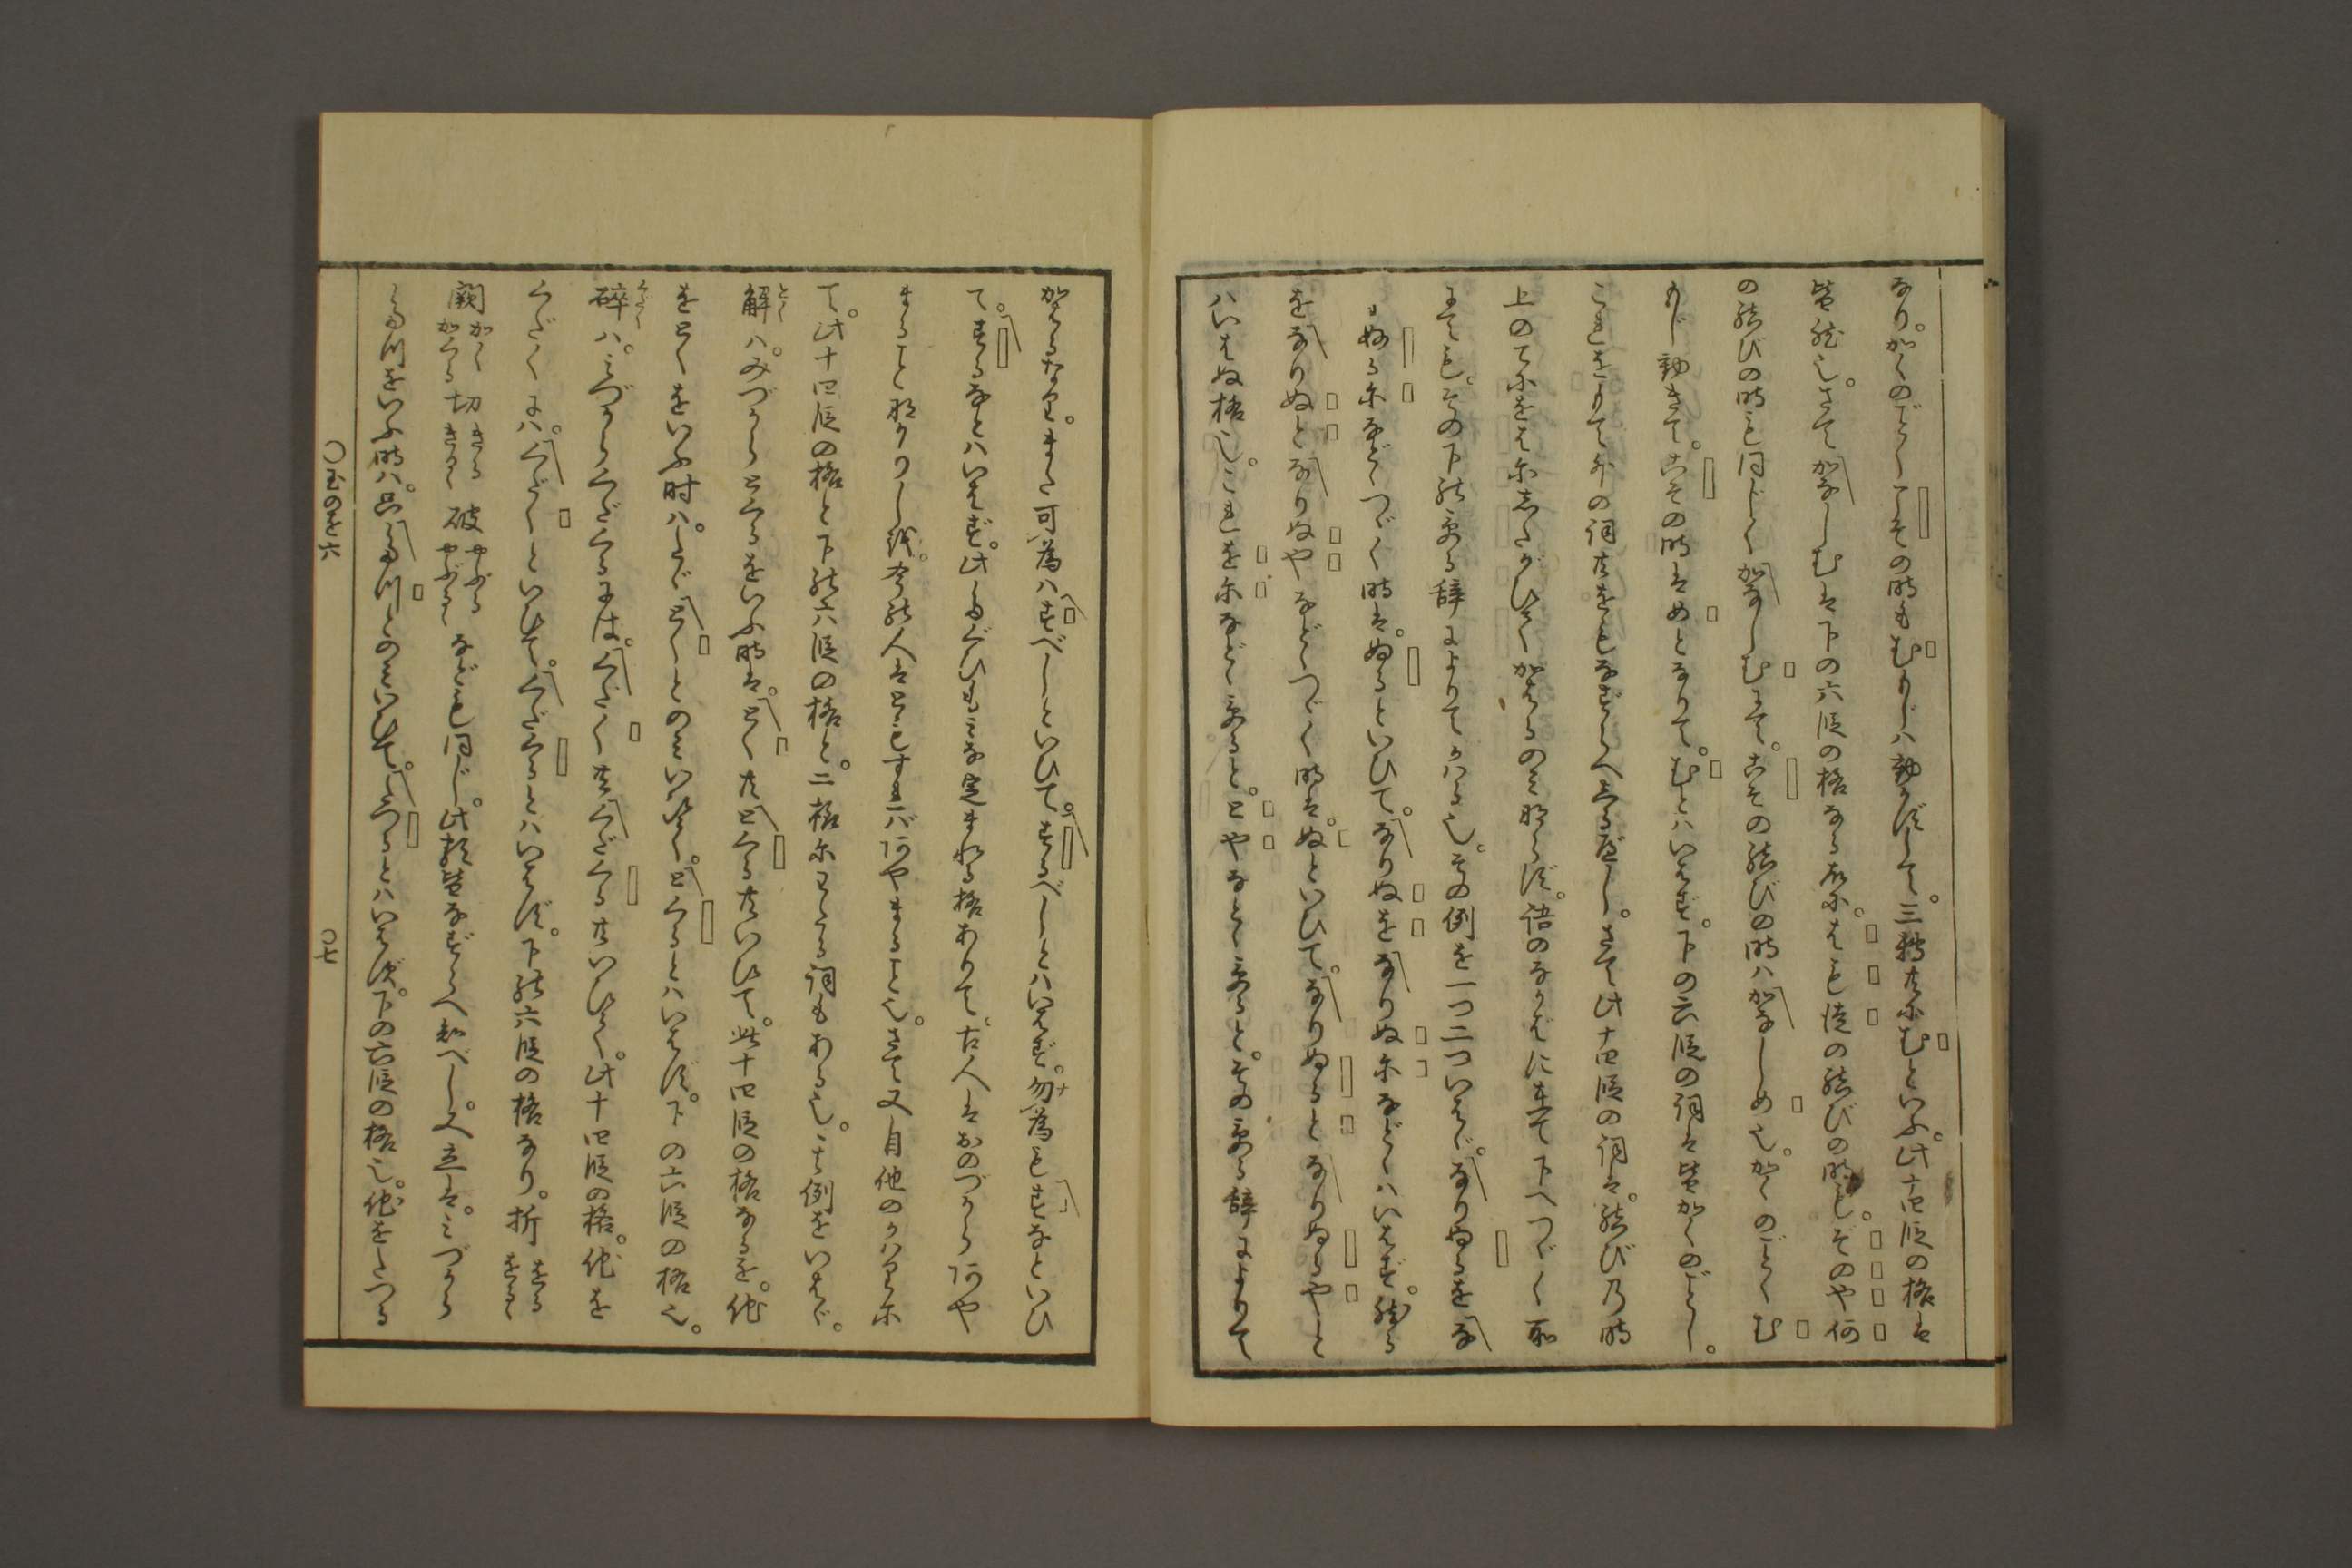 なり。かくのごとくこその時もむもじハ動かずして。三転共にむといふ。此十四段の格は
皆然也。さてかなしむは下の六段の格なる故に。はも徒の結びの時も。ぞのや何
の結びの時も同じくかなしむにて。こその結びの時ハかなしめ也。かくのごとくむ
もじ動きて。こその時はめとなりて。むとハいはず。下の六段の詞は皆かくのごとし。
これをもて外の詞共をもなずらへしるべし。さて此十四段の詞は。結び乃時
上のてにをはにしたがひてかはるのみならず。語のなかばに在て下へつゞく所
にても。その下の受る辞によりてかハる也。その例を一つ二ついはゞ。なりぬるをな
りぬるになどつゞく時は。ぬるといひて。なりぬをなりぬになどハいはず。然る
をなりぬとなりぬやなどつゞく時は。ぬといひて。なりぬるとなりぬるやと
ハいはぬ格也。これをになど受ると。とやなど受ると。その受る辞によりて
かはるなり。また可為ハすべしといひて。するべしとハいはず。勿為もすなといひ
て。するなとハいはず。此たぐひもみな定まれる格ありて。古人はおのづからあや
まることなかりしを。今の人はともすればあやまること也。さて又自他のかハりに
て。此十四段の格と下の六段の格と。二格にわたる詞もある也。其例をいはゞ。
解ハ。みづからとくるをいふ時は。とく共とくる共いひて。此十四段の格なるを。他
をとくをいふ時ハ。たゞとくとのみいひて。とくるとハいはず。下の六段の格也。
碎ハ。みづからくだくるには。くだく共くだくる共いひて。此十四段の格。他を
くだくにハ。くだくといひて。くだくるとハいはず。下の六段の格なり。折 をる をるゝ
闕 かく かくる 切 きる きるゝ 破 やぶる やぶるゝ なども同じ。此類皆なずらへ知べし。又立は。みづから
たつをいふ時ハ。只たつとのみいひて。たつるとハいはず。下の六段の格也。他をたつる
〇玉のを六 〇七